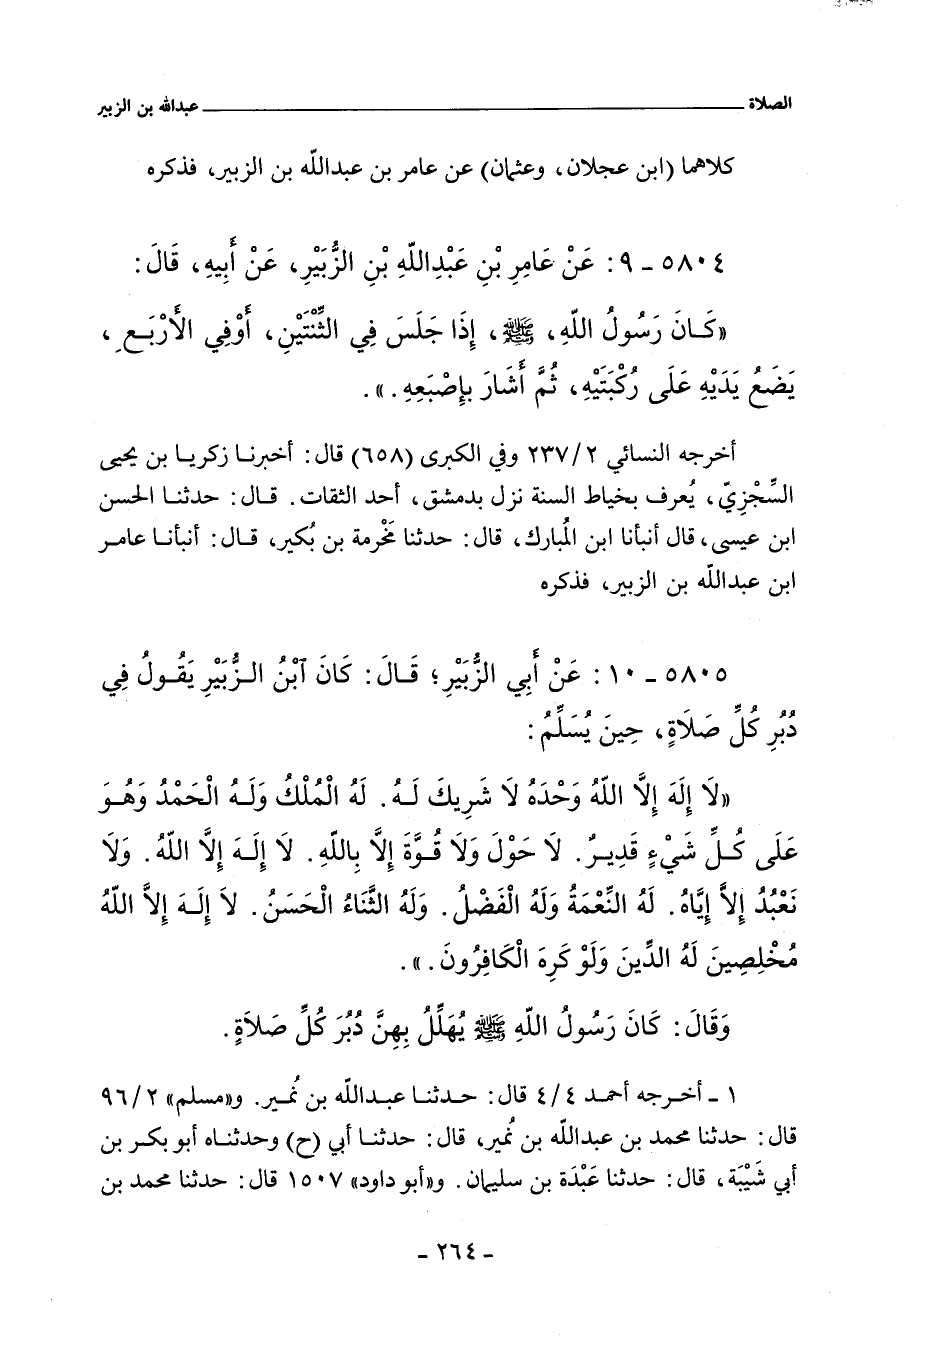 الصلاة عبدالله بن الزبير
كلاهما (ابن عجلان، وعثمان) عن عامر بن عبدالله بن الزبير، فذكره
٥٨٠٤ - ٩: عَنْ عَامِرِ بْنِ عَبْدِاللّهِ بْنِ الزُّبَيْرِ، عَنْ أَبِيهِ، قَالَ:
«كَانَ رَسُولُ اللّهِ، ﷺ، إِذَا جَلَسَ فِي الثِّنْتَيْنِ، أَوْفِي الأَرْبَعِ،
يَضَعُ يَدَيْهِ عَلَى رُكْبَتَيْهِ، ثُمَّ أَشَارَ بِإِصْبَعِهِ.».
أخرجه النسائي ٢٣٧/٢ وفي الكبرى (٦٥٨) قال: أخبرنا زكريا بن يحيى
السِّجْزِيّ، يُعرف بخياط السنة نزل بدمشق، أحد الثقات. قال: حدثنا الحسن
ابن عيسى، قال أنبأنا ابن المُبارك، قال: حدثنا مَخْرمة بن بُكير، قال: أنبأنا عامر
ابن عبدالله بن الزبير، فذكره
٥٨٠٥ - ١٠: عَنْ أَبِي الزُّبَيْرِ؛ قَالَ: كَانَ آبْنُ الزُّبَيْرِ يَقُولُ فِي
دُبُرِ كُلِّ صَلَاةٍ، حِينَ يُسَلِّمُ:
«لَا إِلَهَ إِلَّا اللّهُ وَحْدَهُ لَا شَرِيكَ لَهُ. لَهُ الْمُلْكُ وَلَهُ الْحَمْدُ وَهُوَ
عَلَى كُلِّ شَيْءٍ قَدِيرٌ. لَا حَوْلَ وَلَا قُوَّةَ إِلَّا بِاللّهِ. لَا إِلَهَ إِلَّا اللّهُ. وَلَا
نَعْبُدُ إِلاَّ إِيَّاهُ. لَهُ النِّعْمَةُ وَلَهُ الْفَضْلُ. وَلَهُ الثَّنَاءُ الْحَسَنُ. لاَ إِلَهَ إِلاَّ اللّهُ
مُخْلِصِينَ لَهُ الدِّينَ وَلَوْ كَرِهَ الْكَافِرُونَ.».
وَقَالَ: كَانَ رَسُولُ اللّهِ ﷺ يُهَلِّلُ بِهِنَّ دُبُرَ كُلِّ صَلاَةٍ.
١ - أخرجه أحمد ٤/٤ قال: حدثنا عبدالله بن نُمير. و«مسلم» ٩٦/٢
قال: حدثنا محمد بن عبدالله بن نُمير، قال: حدثنا أبي (ح) وحدثناه أبو بكر بن
أبي شَيْبَة، قال: حدثنا عَبْدَة بن سليمان. و«أبو داود» ١٥٠٧ قال: حدثنا محمد بن
- ٢٦٤ -